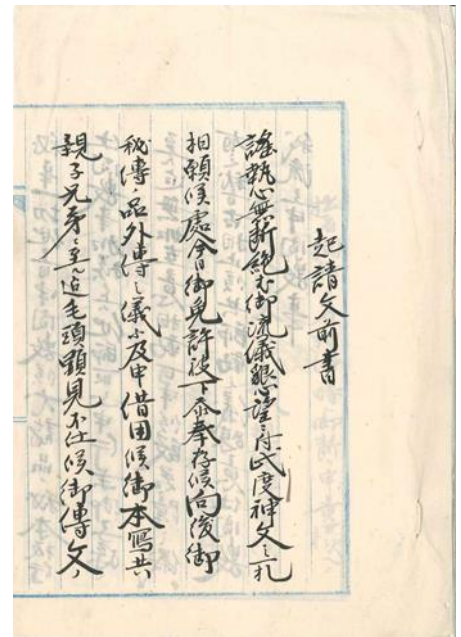 起請文前書
謡執心無断絶尓御流儀懇望ニ付式度神文之一札
相願候處今日御免許被下忝奉存候向後御
秘傳ノ品外傳之儀不及申借用候御本写共
親子兄弟ニ至迄毛頭顕見不仕候御傳文ノ